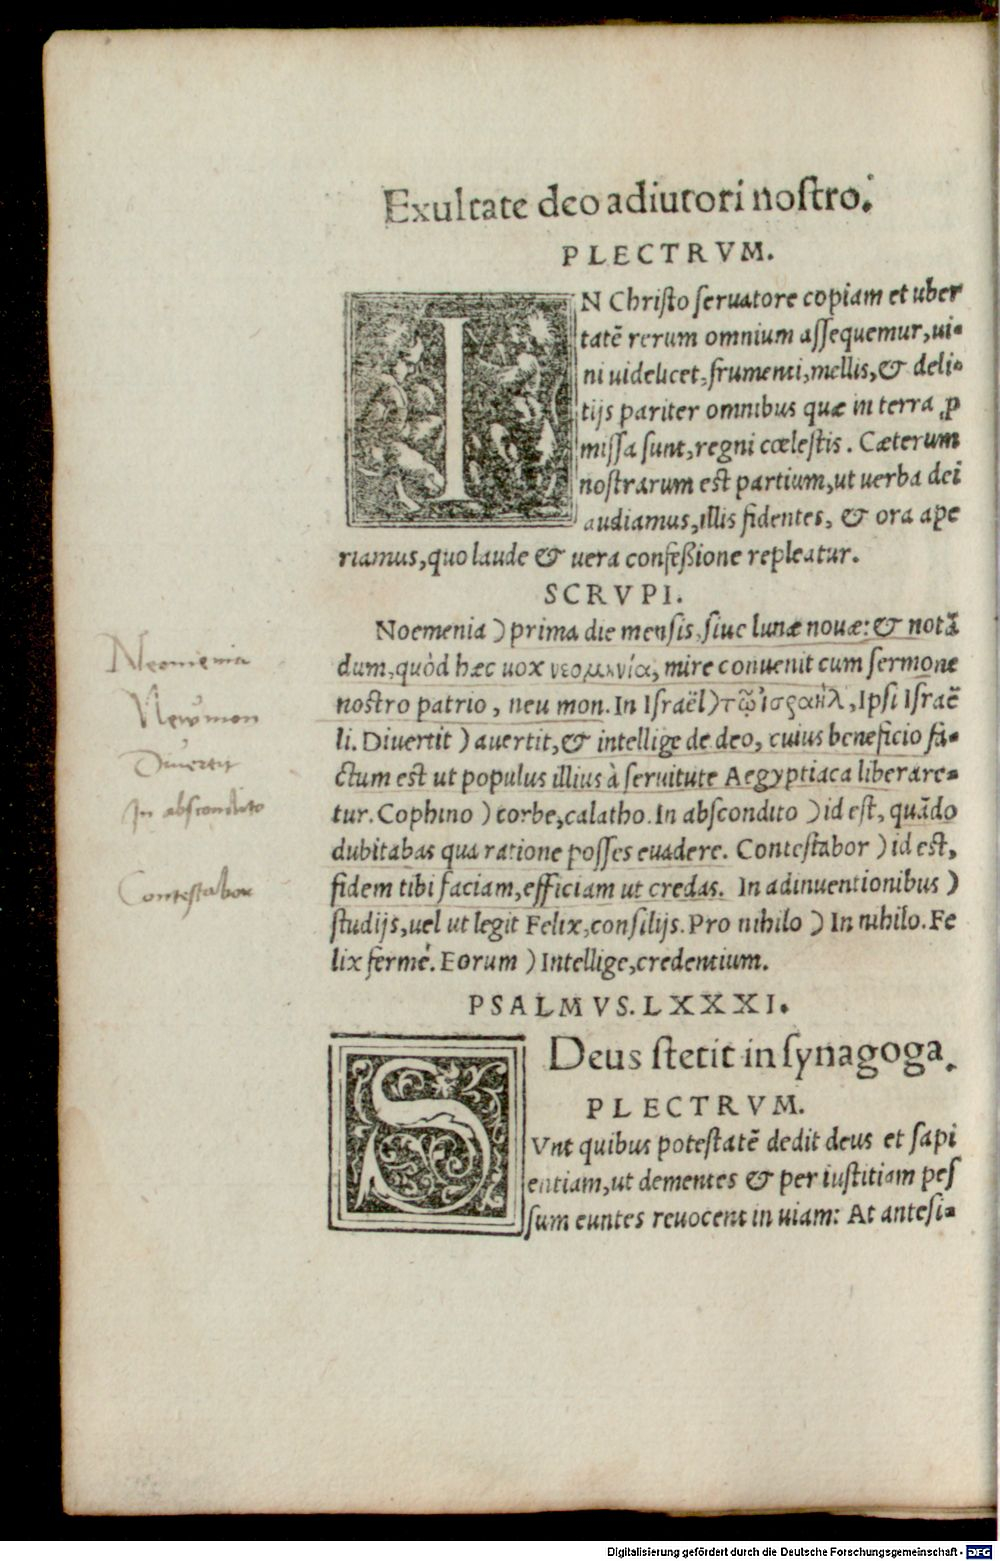 Exultate deo adiutori nostro.
PLECTRVM.
IN Christo seruatore copiam et uber
tatē rerum omnium assequemur, ui-
ni uidelicet, frumenti, mellis, & deli-
tijs pariter omnibus quæ in terra ꝓ
missa sunt, regni cœlestis. Cæterum
nostrarum est partium, ut uerba dei
audiamus, illis fidentes, & ora ape
riamus, quo laude & uera confeßione repleatur.
SCRVPI.
Noemenia ) prima die mensis, siue lunæ nouæ: & notā
dum, quòd hæc uox νεομηνία, mire conuenit cum sermone
nostro patrio, neu mon. In Israël ) τῷ ἰσραὴλ, Ipsi Israē
li. Diuertit ) auertit, & intellige de deo, cuius beneficio fa-
ctum est ut populus illius à seruitute Aegyptiaca liberare-
tur. Cophino ) corbe, calatho. In abscondito ) id est, quādo
dubitabas qua ratione posses euadere. Contestabor ) id est,
fidem tibi faciam, efficiam ut credas. In adinuentionibus )
studijs, uel ut legit Felix, consilijs. Pro nihilo ) In nihilo. Fe
lix fermè. Eorum ) Intellige, credentium.
Neomenia
Newmon
Diuertit
In abscondito
Contestabor
PSALMVS. LXXXI.
Deus stetit in synagoga.
PLECTRVM.
SVnt quibus potestatē dedit deus et sapi
entiam, ut dementes & per iustitiam pes
sum euntes reuocent in uiam: At antesi-
Digitalisierung gefördert durch die Deutsche Forschungsgemeinschaft - DFG